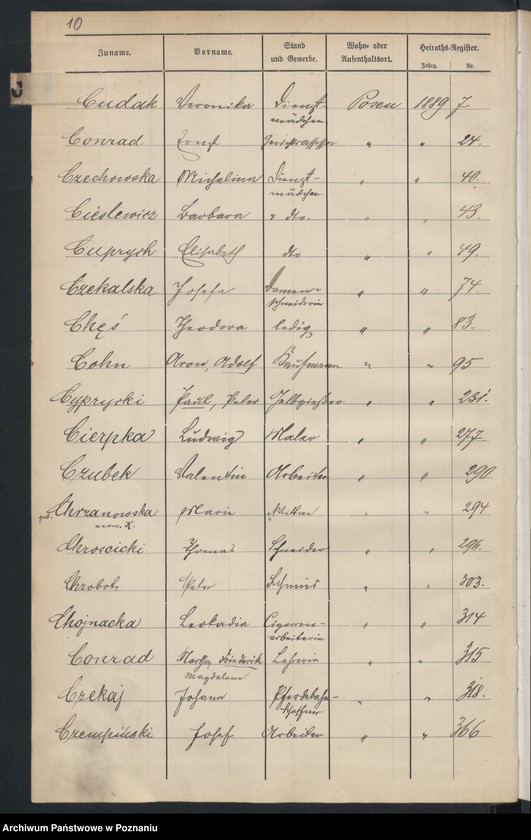 10
Zuname. Vorname. Stand und Gewerbe. Wohn- oder Aufenthaltsort. Heiraths-Register.
Jahrg. Nr.
Cudak Veronika Dienst- Posen 1889 7
mädchen
Conrad Ernst Gerichtsassessor " " 24.
Czechowska Michalina Dienst- " " 40.
mädchen
Cieslewicz Barbara " dto. " " 43.
Cuprych Elisabeth dto " " 49.
Czekalska Josefa Damen- " " 74.
schneiderin
Chęś Theodora ledig " " 83.
Cohn Aron, Adolf Kaufmann " " 95
Cyprycki Paul, Peter Gelbgießer " " 231.
Cierpka Ludwig Maler " " 277.
Czubek Valentin Arbeiter " " 290.
Chrzanowska Marie Wittwe " " 294
Chroscicki Thomas Schneider " " 296.
Chrobot Peter Schmid " " 303.
Chojnacka Leokadia Cigarren- " " 314
arbeiterin
Conrad Martha, Friederike Lehrerin " " 315
Magdalene
Czekaj Johann Pferdebahn- " " 318.
Schaffner
Czempiński Josef Arbeiter " " 366
Archiwum Państwowe w Poznaniu